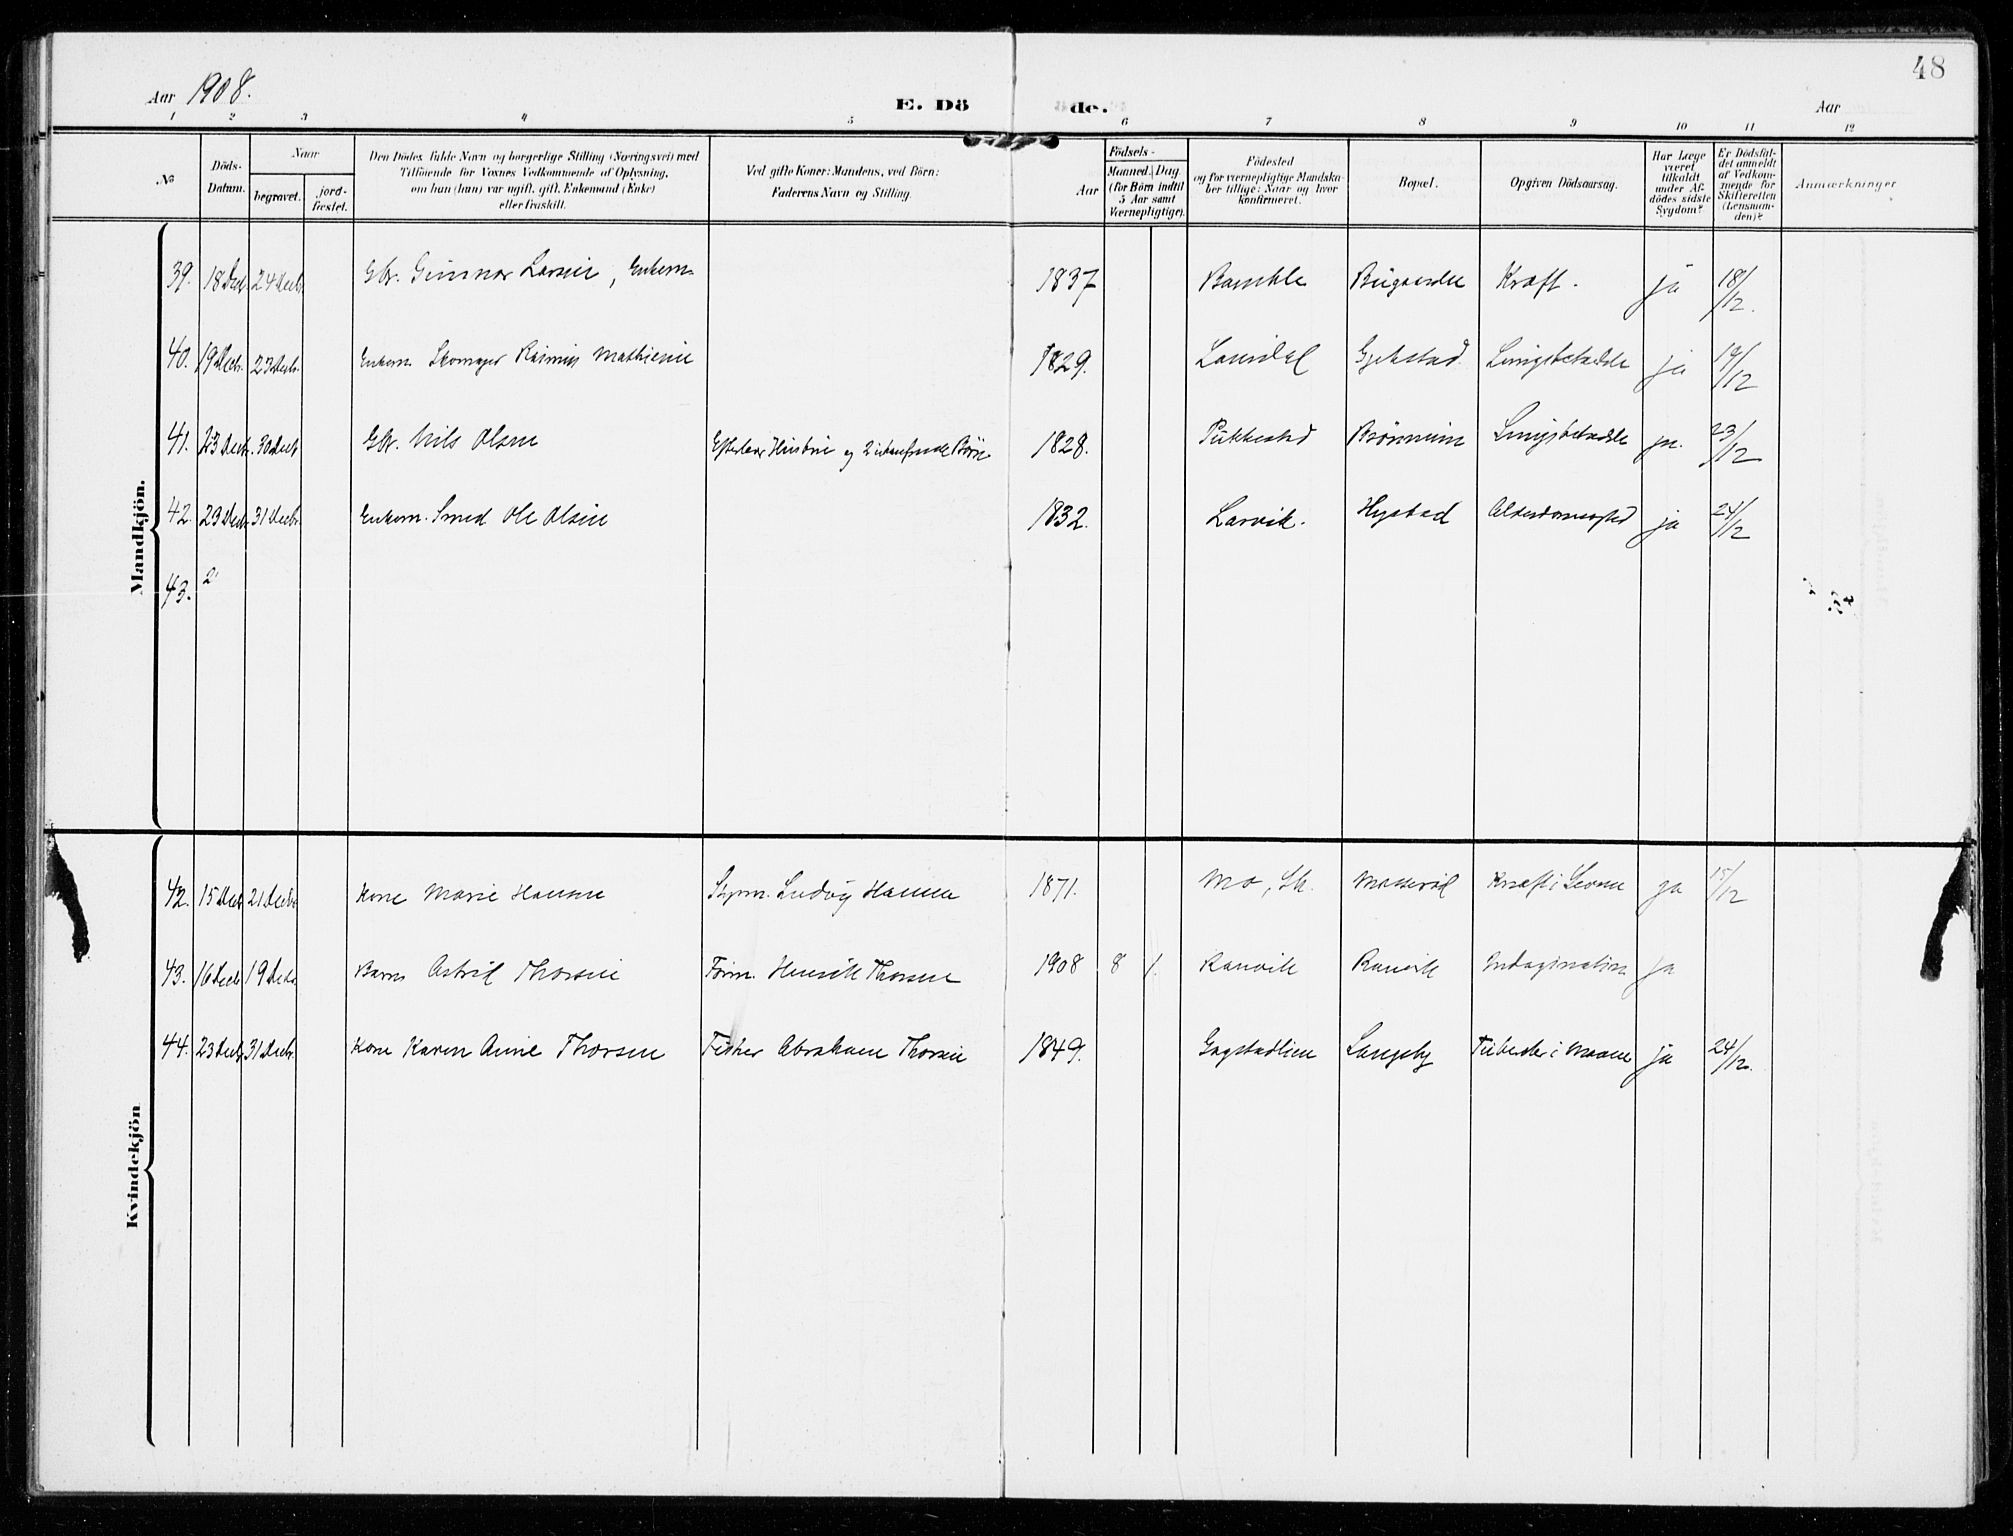 48
Aar 1908.
E. Dö de.
Aar
1 2 3 4 5 6 7 8 9 10 11 12
No
Döds-Datum.
Naar
begravet.
jord-fæstet.
Den Dödes fulde Navn og borgerlige Stilling (Næringsvei) med
Tilföiende for Voxnes Vedkommende af Oplysning,
om han (hun) var ugift, gift, Enkemand (Enke)
eller fraskilt.
Ved gifte Koner: Mandens, ved Börn:
Faderens Navn og Stilling.
Födsels-
Aar
Maaned. Dag
(for Börn indtil
5 Aar samt
Værnepligtige).
Födested
og for værnepligtige Mandska-
ber tillige: Naar og hvor
konfirmeret.
Bopæl.
Opgiven Dödsaarsag.
Har Læge
været
tilkaldt
under Af-
dödes sidste
Sygdom?
Er Dödsfal-
det anmeldt
af Vedkom-
mende for
Skifteretten
(Lensman-
den)?
Anmærkninger
Mandkjön.
39. 18 Decb. 24 Decb. Gbr. Gunnar Larsen, Enkem. 1837 Bamble Kræft. ja 18/12.
40. 19 Decb. 23 Decb. Enkem. Skomager Rasmus Mathisen 1829. Laurdal Gjekstad Lungebetændelse ja 19/12
41. 23 Decb. 30 Decb. Gbr. Nils Olsen Efterlader Hustru og 2 Börn 1828. Pukkestad Lungebetændelse ja. 23/12
42. 23 Decb. 31 Decb. Enkem. Smed Ole Olsen 1832. Larvik. Hystad Alderdomssvaghed ja 24/12
43. 2
Kvindekjön
42. 15 Decb. 21 Decb. Kone Marie Hansen Styrm. Ludvig Hansen 1871. Mo, Sk. Kræft i Leveren ja 15/12
43. 16 Decb. 19 Decb. Barn Astrid Thorsen Form. Henrik Thorsen 1908 8 1. Ranvik Ranvik ja
44. 23 Decb. 31 Decb. Kone Karen Anne Thorsen Fisker Abraham Thorsen 1849. Gogstadlien Langeby i Maven ja 24/12.